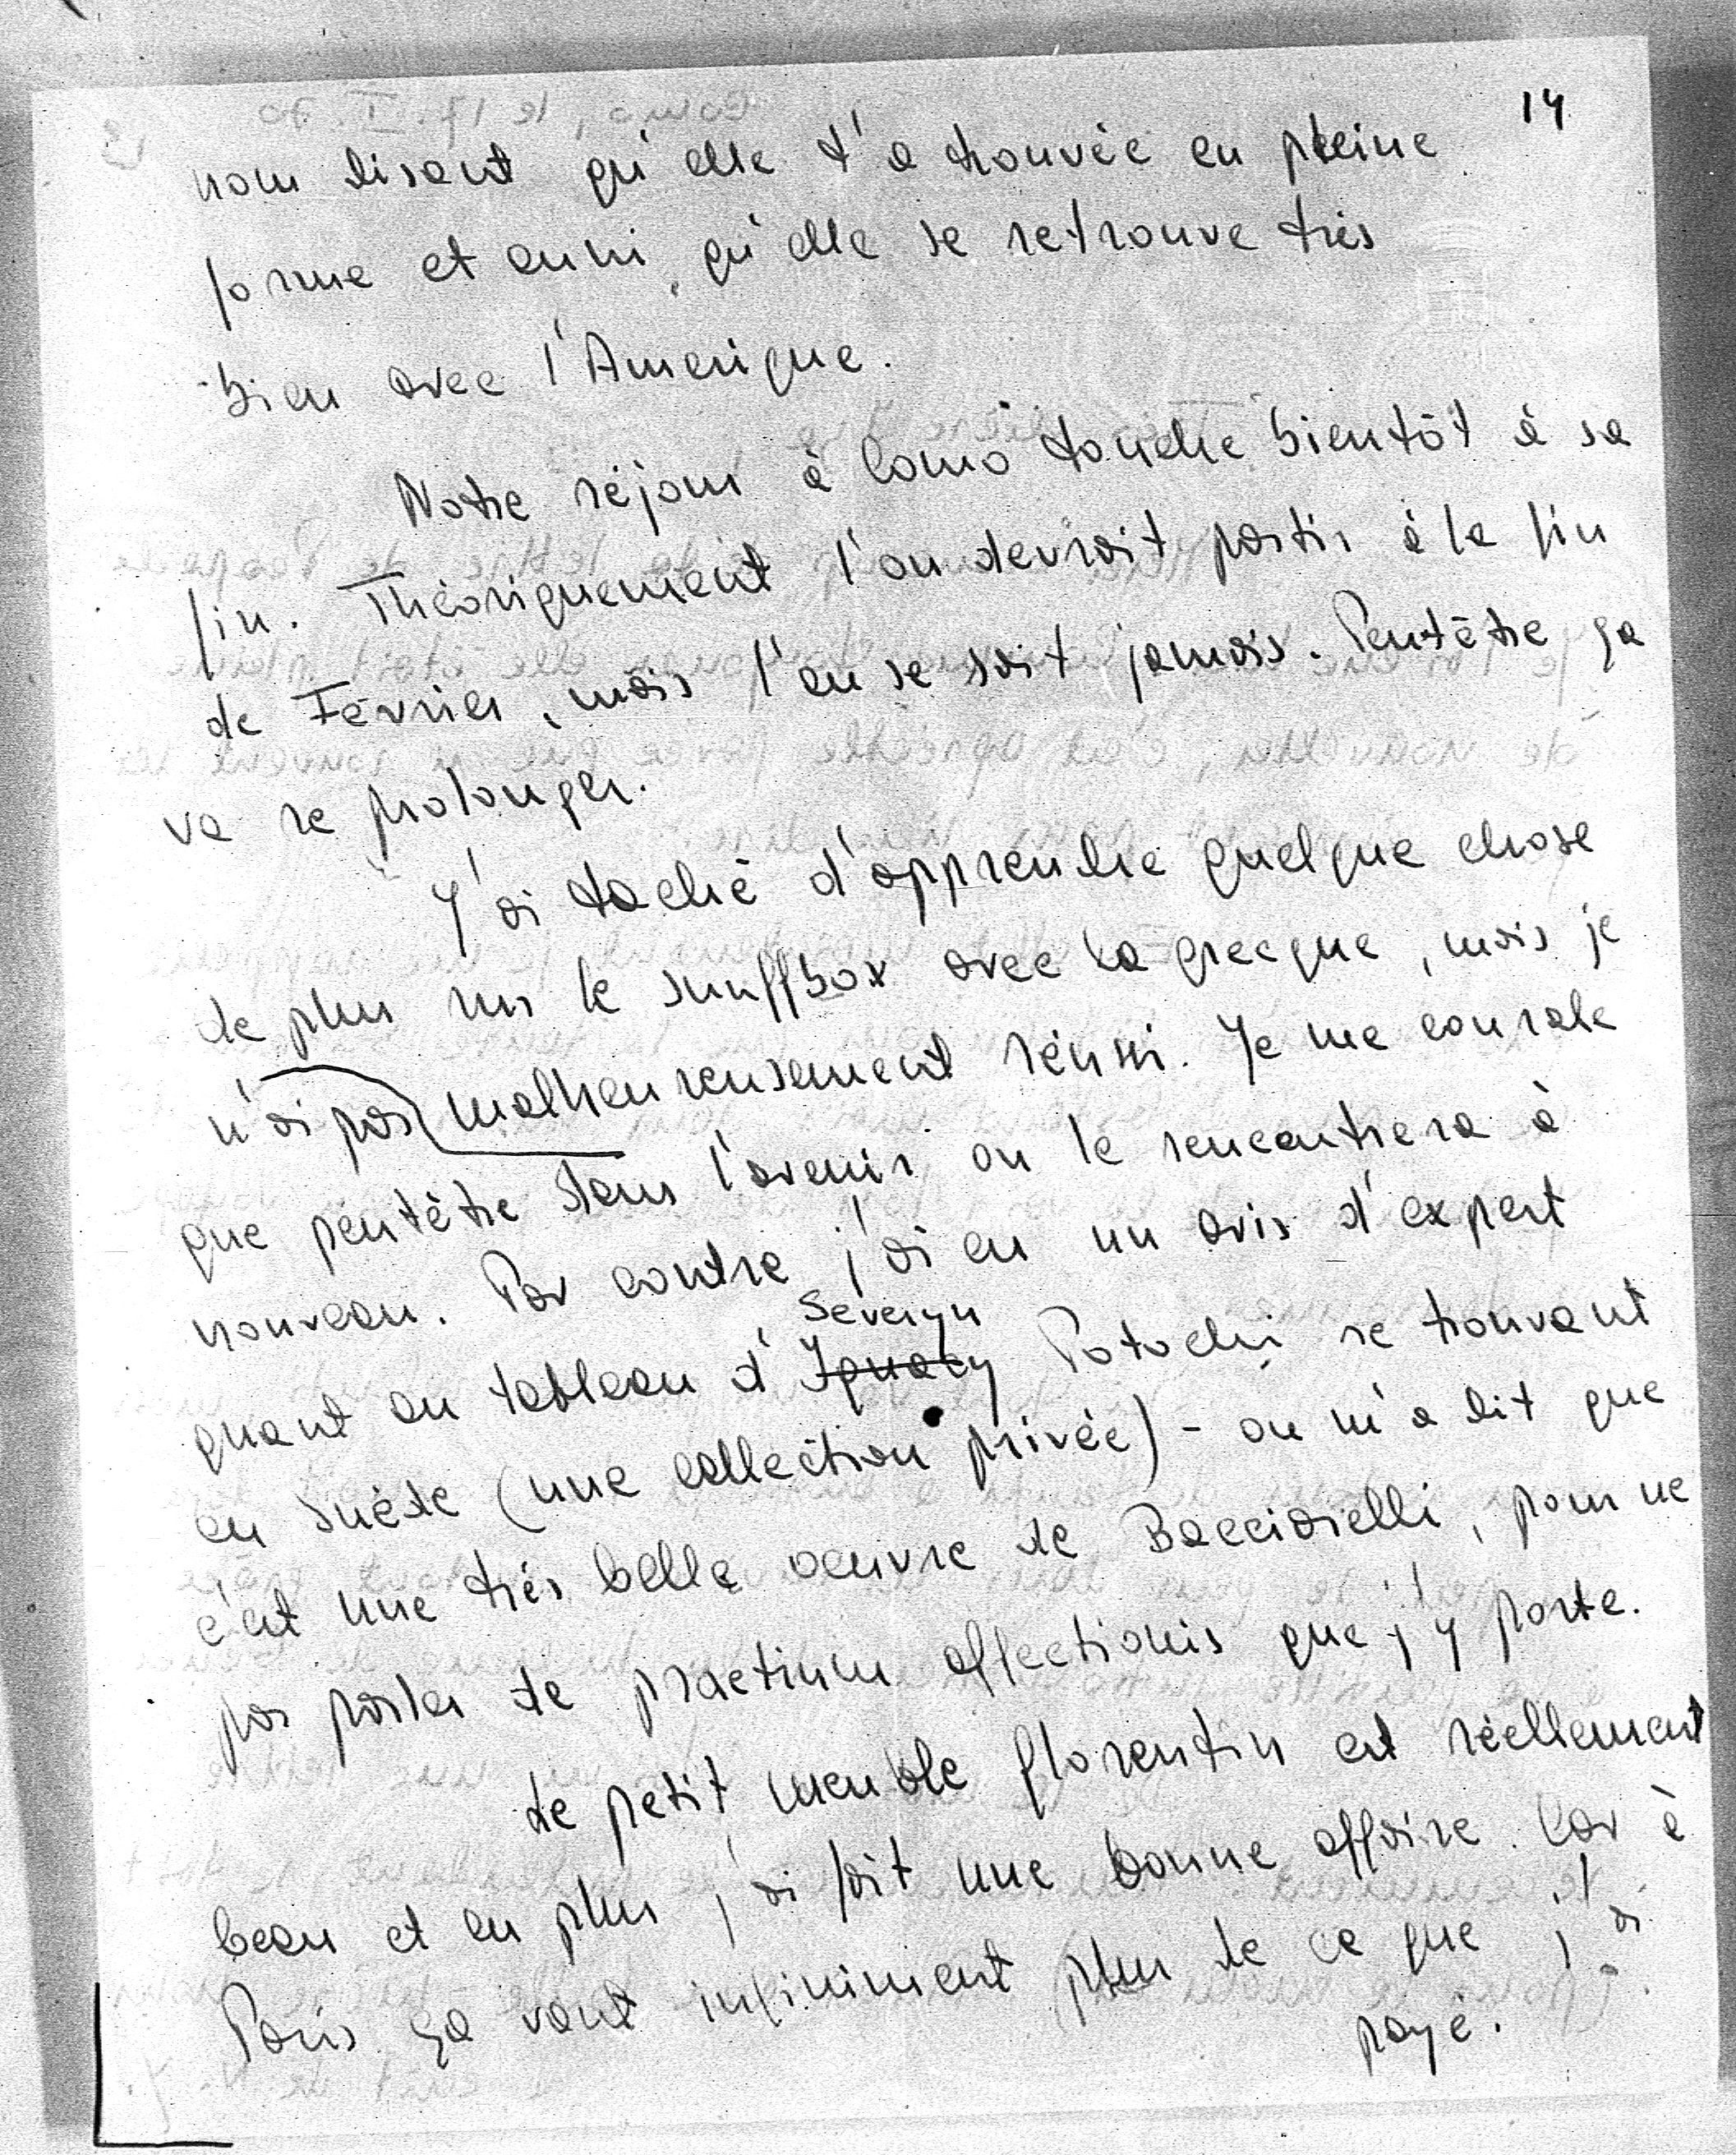 14
nous disant qu'elle t'a trouvée en pleine
forme et aussi, qu'elle se retrouve très
bien avec l'Amerique.
Notre séjour à Como touche bientôt à sa
fin. Théoriquement l'on devrait partir à la fin
de Février, mais l'on se sait jamais. Peutêtre ça
va se prolonger.
J'ai taché d'apprendre quelque chose
de plus sur le snuffbox avec la grecque, mais je
n'ai pas malheureusement réussi. Je me console
que peutêtre dans l'avenir on le rencontrera à
nouveau. Par contre j'ai eu un avis d'expert
Seweryn
quant au tableau d'Ignacy Potocki se trouvant
en Suède (une collection privée) - on m'a dit que
c'est une très belle oeuvre de Bacciarelli, pour ne
pas parler de praetium affectionis que j'y porte.
Le petit meuble florentin est réellement
beau et en plus j'ai fait une bonne affaire. Car à
Paris ça vaut infiniment plus de ce que j'ai
payé.